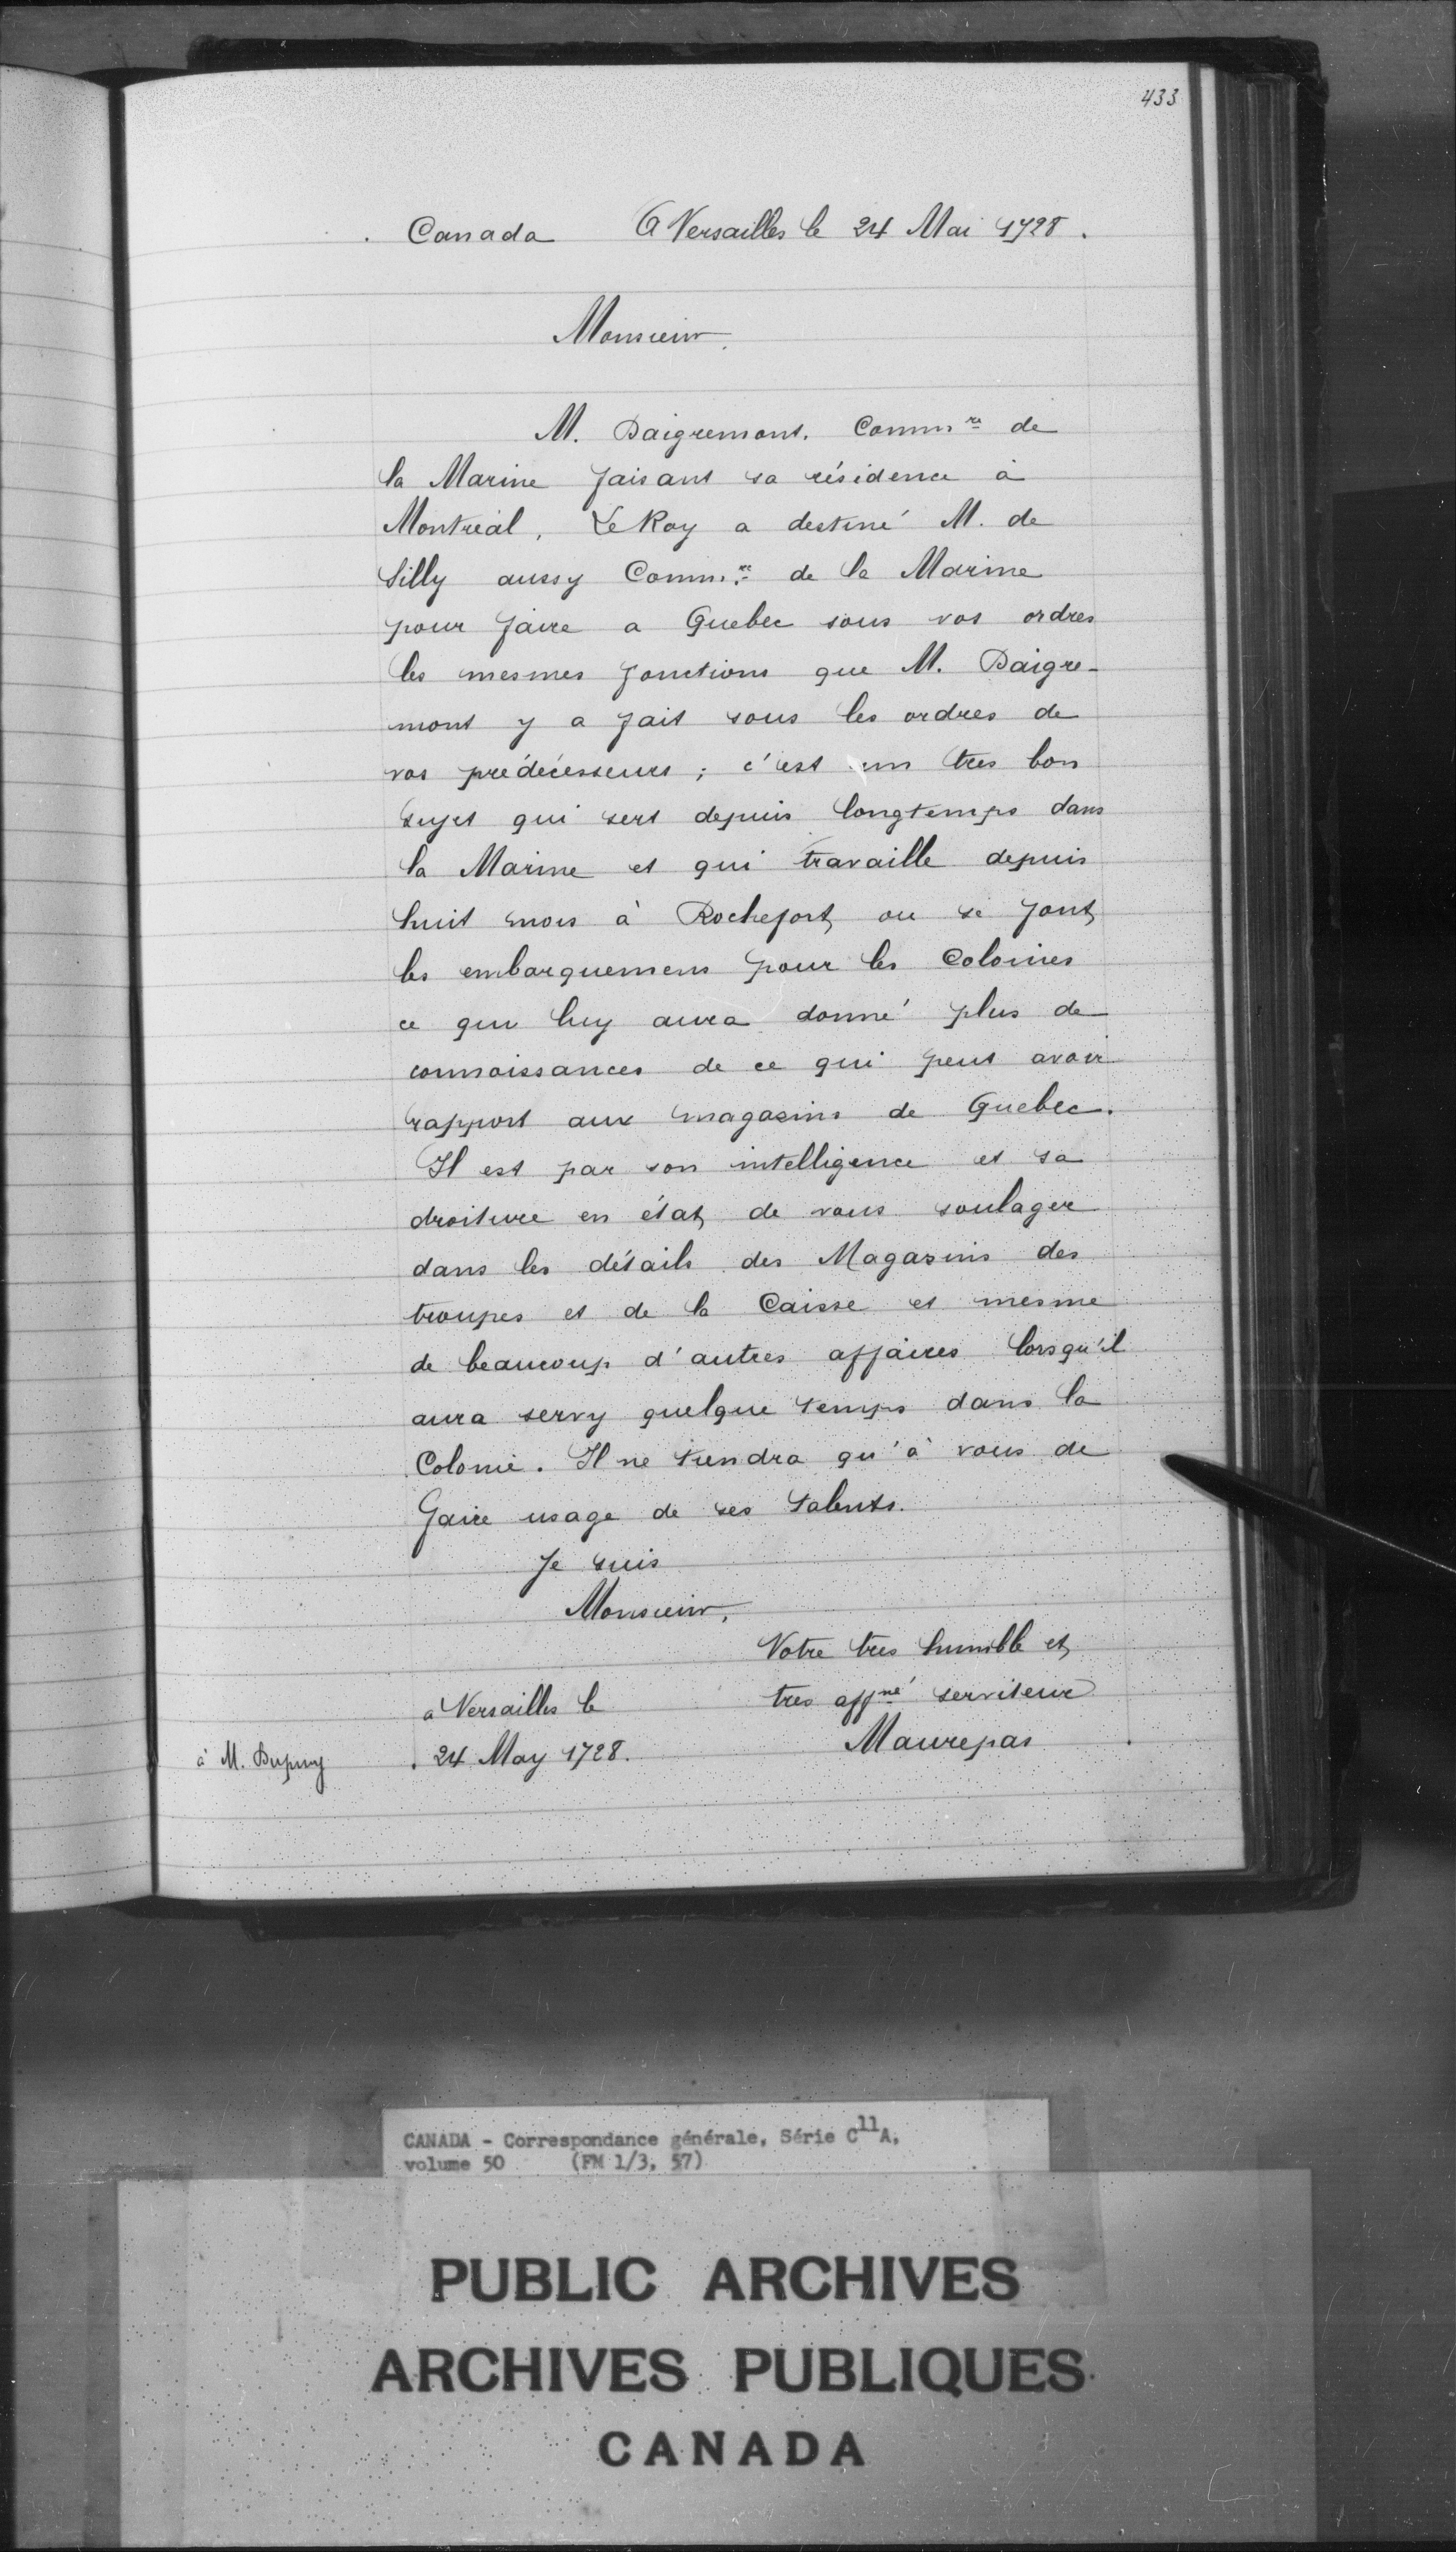 433
Canada A Versailles le 24 Mai 1728.
Monsieur,
M. Daigremont. Comm.re de
la Marine faisant sa résidence à
Montréal, Le Roy a destiné M. de
Silly aussy Comm.re de la Marine
pour faire a Quebec sous vos ordres
les mesmes fonctions que M. Daigre-
mont y a fait sous les ordres de
vos prédécesseurs ; c'est un tres bon
sujet qui sert depuis longtemps dans
la Marine et qui travaille depuis
huit mois à Rochefort ou se font
les embarquemens pour les Colonies
ce qui luy aura donné plus de
connoissances de ce qui peut avoir
rapport aux magasins de Quebec.
Il est par son intelligence et sa
droiture en état de vous soulager
dans les détails des Magasins des
troupes et de la Caisse et mesme
de beaucoup d'autres affaires lorsqu'il
aura servy quelque temps dans la
Colonie. Il ne tiendra qu'à vous de
faire usage de ses talents.
Je suis
Monsieur,
Votre tres humble et
tres affné serviteur
Maurepas
a Versailles le
24 May 1728.
à M. Dupuy
CANADA - Correspondance générale, Série C11A,
volume 50 (FM 1/3, 57)
PUBLIC ARCHIVES
ARCHIVES PUBLIQUES
CANADA